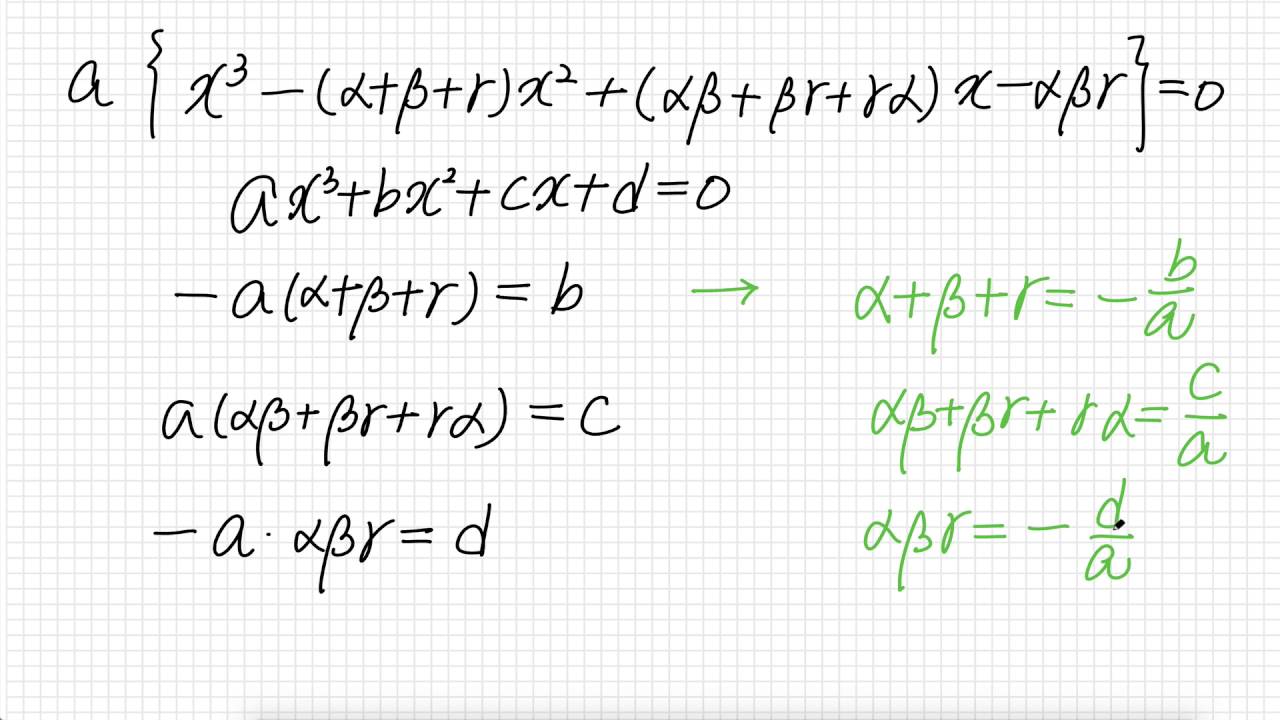 a { x³ − (α+β+γ)x² + (αβ+βγ+γα) x − αβγ } = 0
ax³+bx²+cx+d=0
−a(α+β+γ) = b → α+β+γ = −b/a
a(αβ+βγ+γα) = c αβ+βγ+γα = c/a
−a·αβγ = d αβγ = −d/a